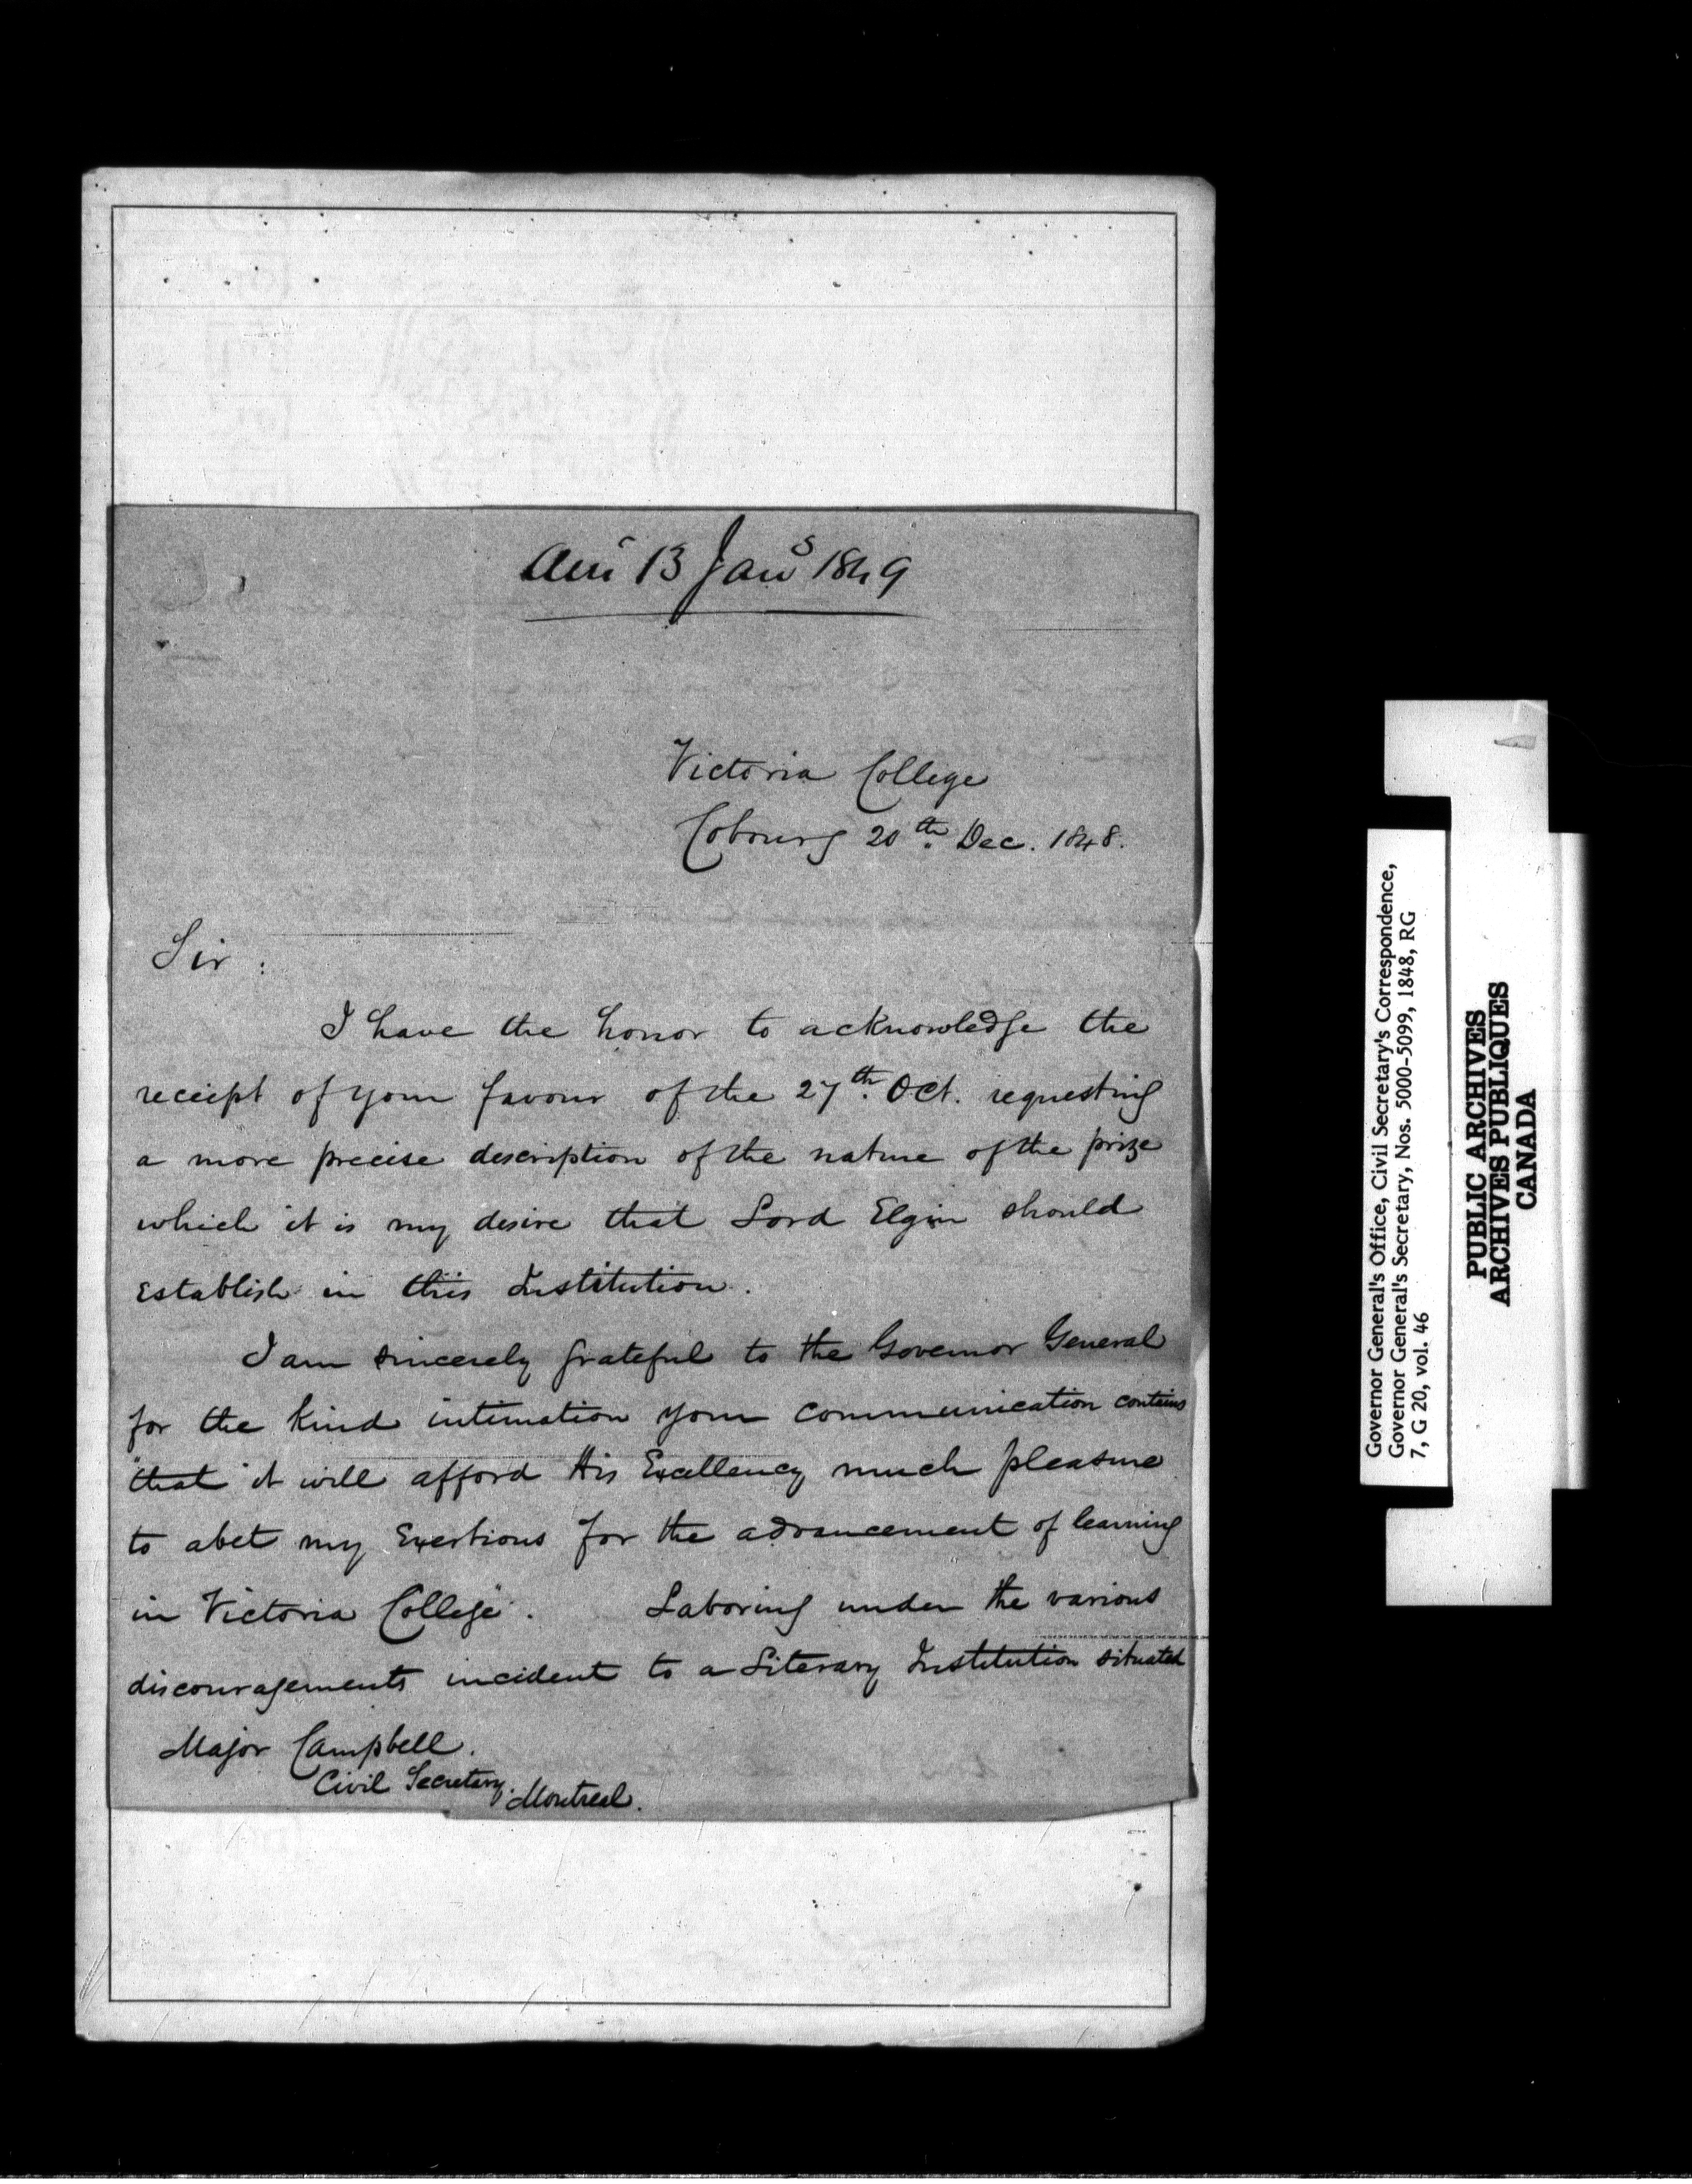 Ansd 13 Jany 1849
Victoria College
Cobourg 20th Dec. 1848.
Sir :
I have the honor to acknowledge the
receipt of your favour of the 27th Oct. requesting
a more precise description of the nature of the prize
which it is my desire that Lord Elgin should
establish in this Institution.
I am sincerely grateful to the Governor General
for the kind intimation your communication contains
"that it will afford His Excellency much pleasure
to abet my Exertions for the advancement of learning
in Victoria College". Laboring under the various
discouragements incident to a Literary Institution situated
Major Campbell.
Civil Secretary. Montreal.
Governor General's Office, Civil Secretary's Correspondence,
Governor General's Secretary, Nos. 5000-5099, 1848, RG
7, G 20, vol. 46
PUBLIC ARCHIVES
ARCHIVES PUBLIQUES
CANADA